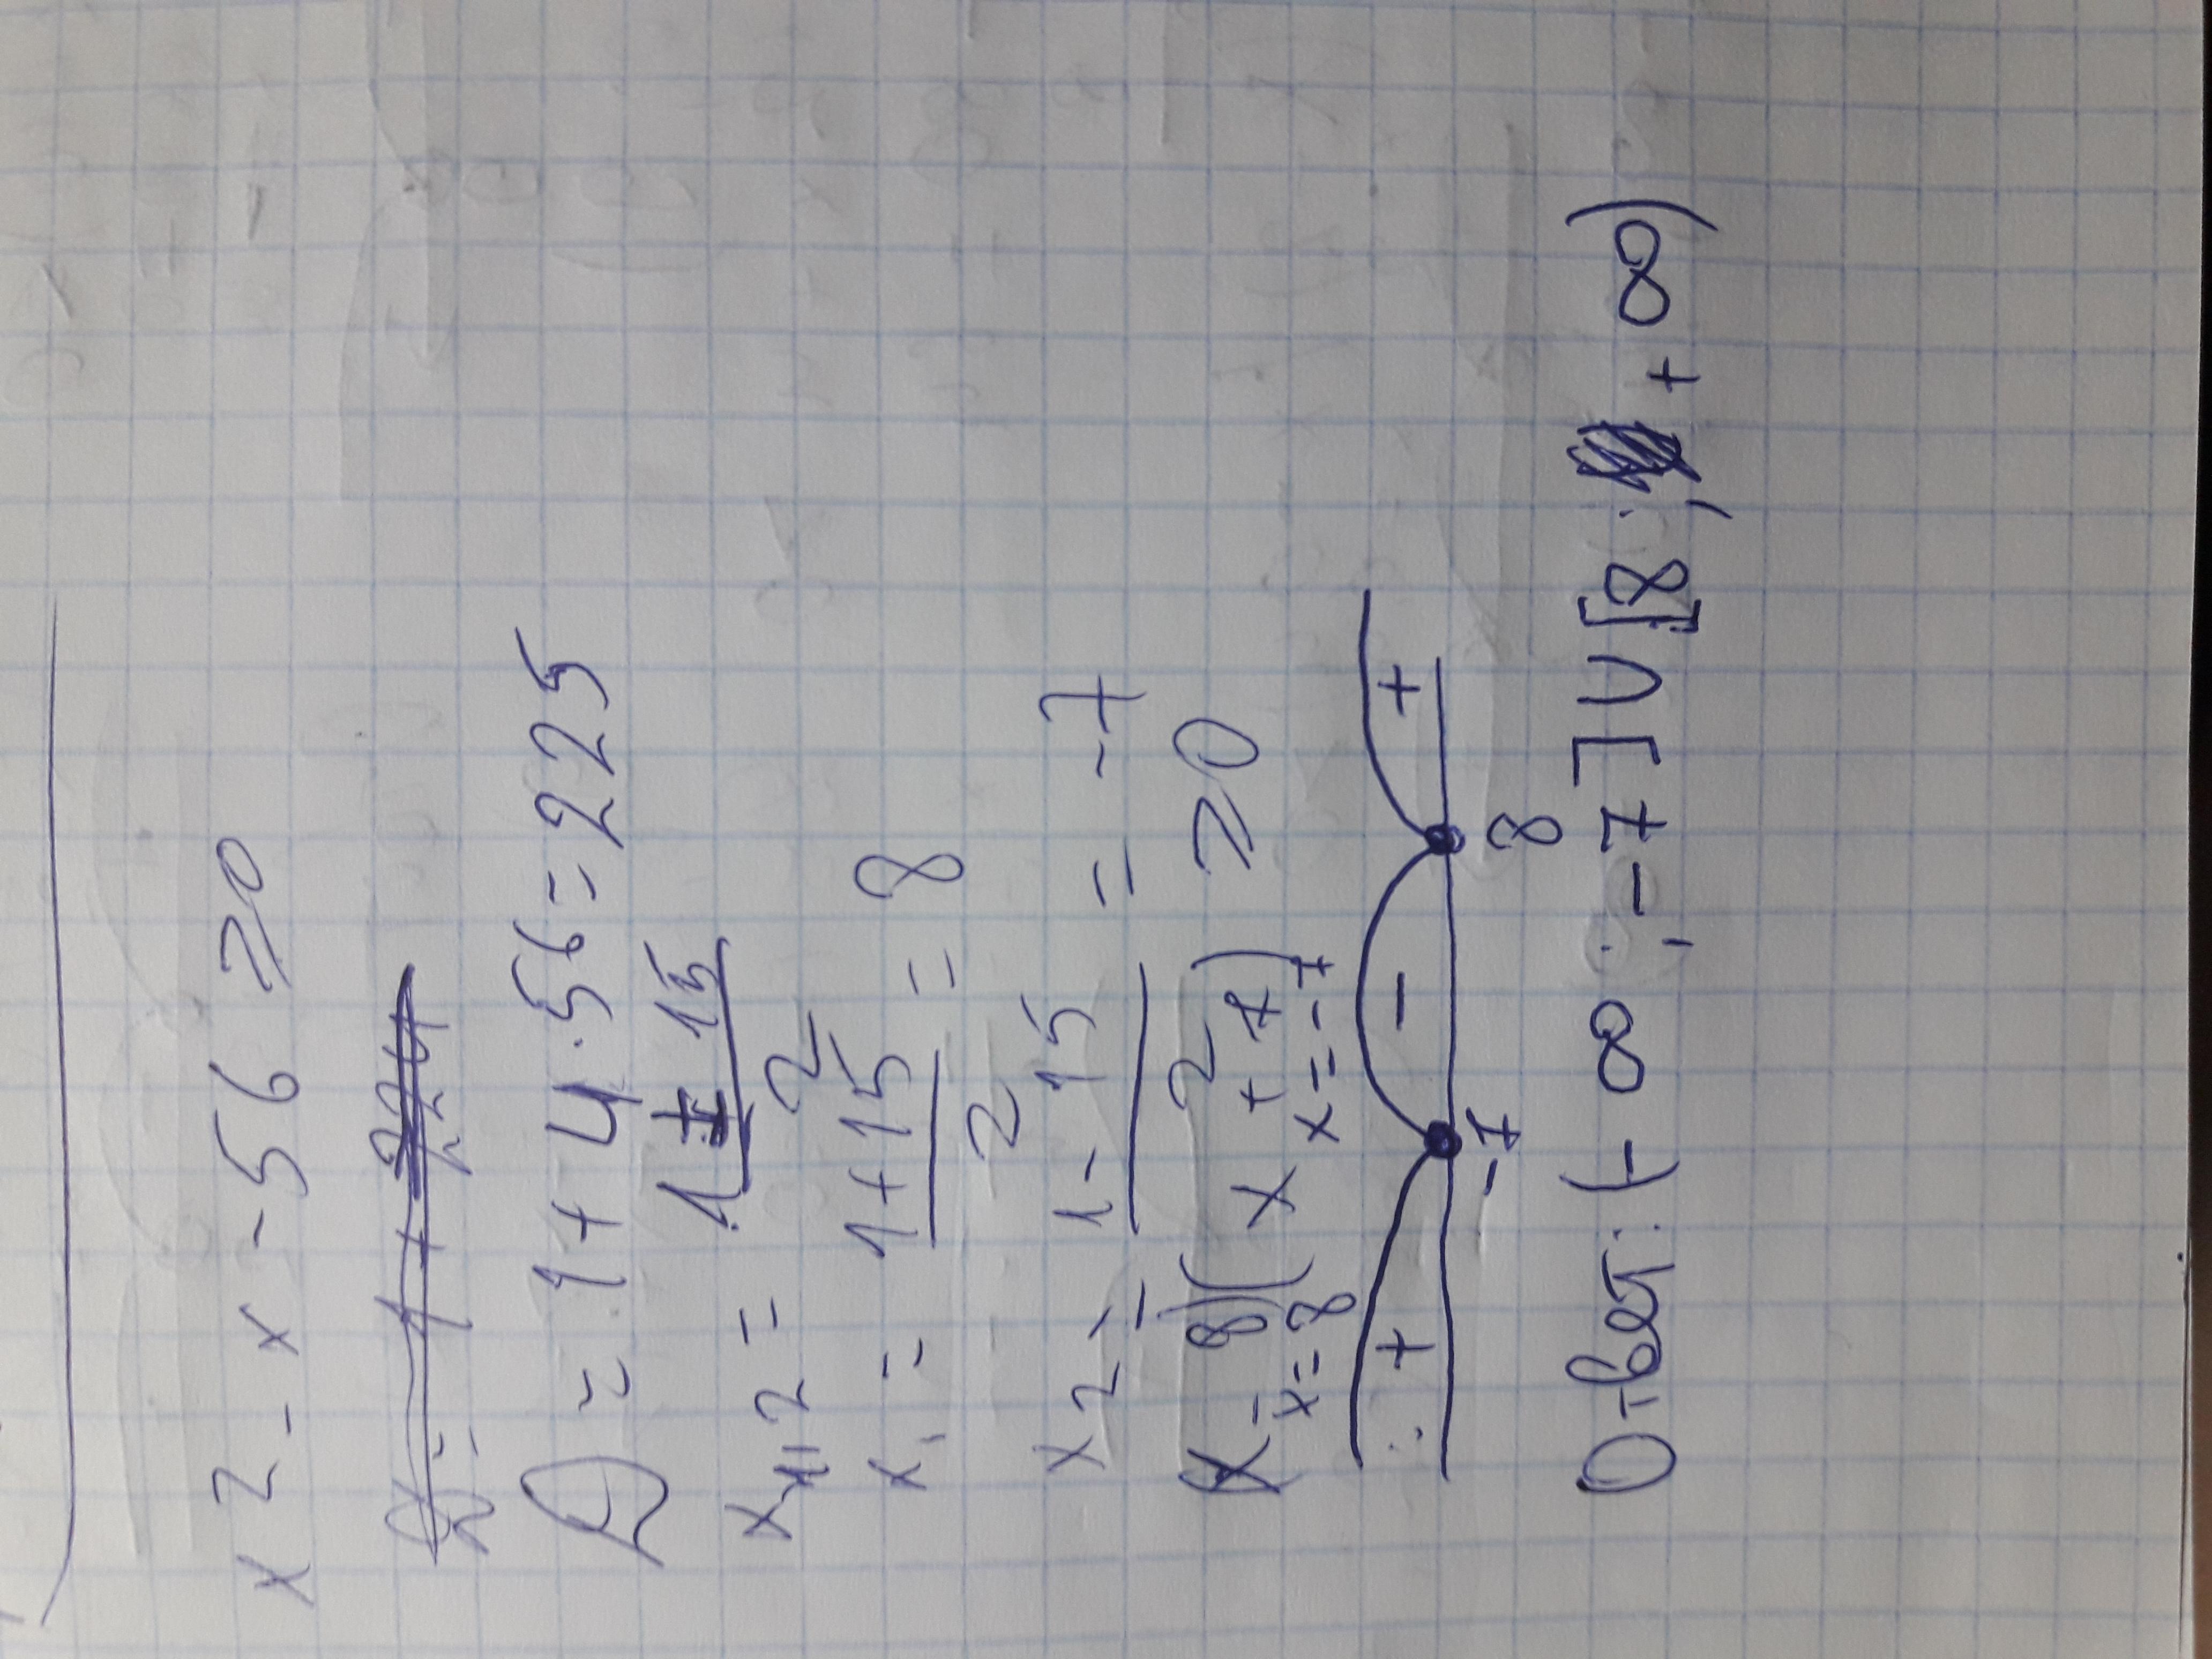 x² - x - 56 ⩾ 0
D = 1 + 4 · 56 = 225
x₁,₂ = (1 ± 15)/2
x₁ = (1 + 15)/2 = 8
x₂ = (1 - 15)/2 = -7
(x - 8)(x + 7) ⩾ 0
x = 8 x = -7
+ - +
-7 8
Ответ: (-∞; -7] ∪ [8; +∞)